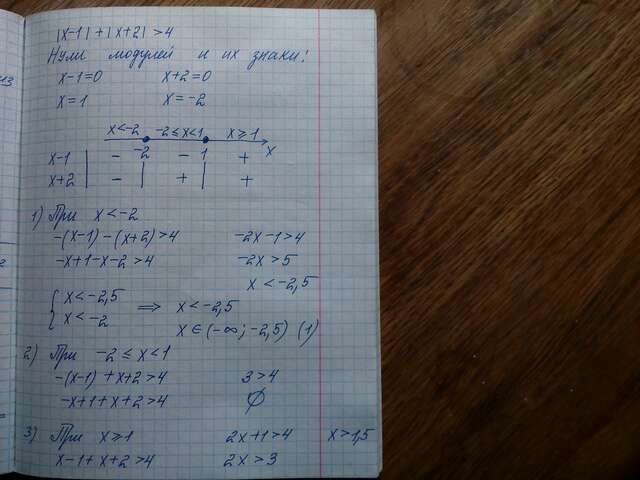 |x-1|+|x+2|>4
Нули модулей и их знаки!
x-1=0 x+2=0
x=1 x=-2
x<-2 -2≤x<1 x≥1
-2 1 x
x-1 - - +
x+2 - + +
1) При x<-2
-(x-1)-(x+2)>4 -2x-1>4
-x+1-x-2>4 -2x>5
x<-2,5
{x<-2,5 ⇒ x<-2,5
x<-2 x∈(-∞;-2,5) (1)
2) При -2≤x<1
-(x-1)+x+2>4 3>4
-x+1+x+2>4 ∅
3) При x≥1 2x+1>4 x>1,5
x-1+x+2>4 2x>3